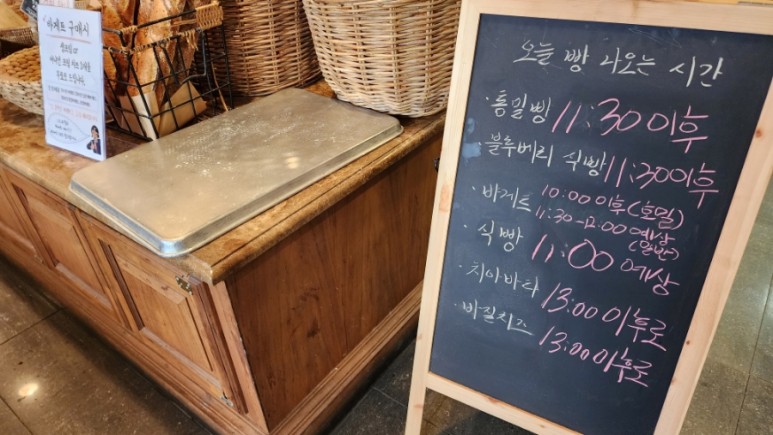 바게트 구매시
오늘 빵 나오는 시간
· 통밀빵 11:30 이후
· 블루베리 식빵 11:30 이후
· 바게트 10:00 이후 (호밀)
11:30-12:00 예상 (일반)
· 식빵 11:00 예상
· 치아바타 13:00 이후로
· 바질치즈 13:00 이후로